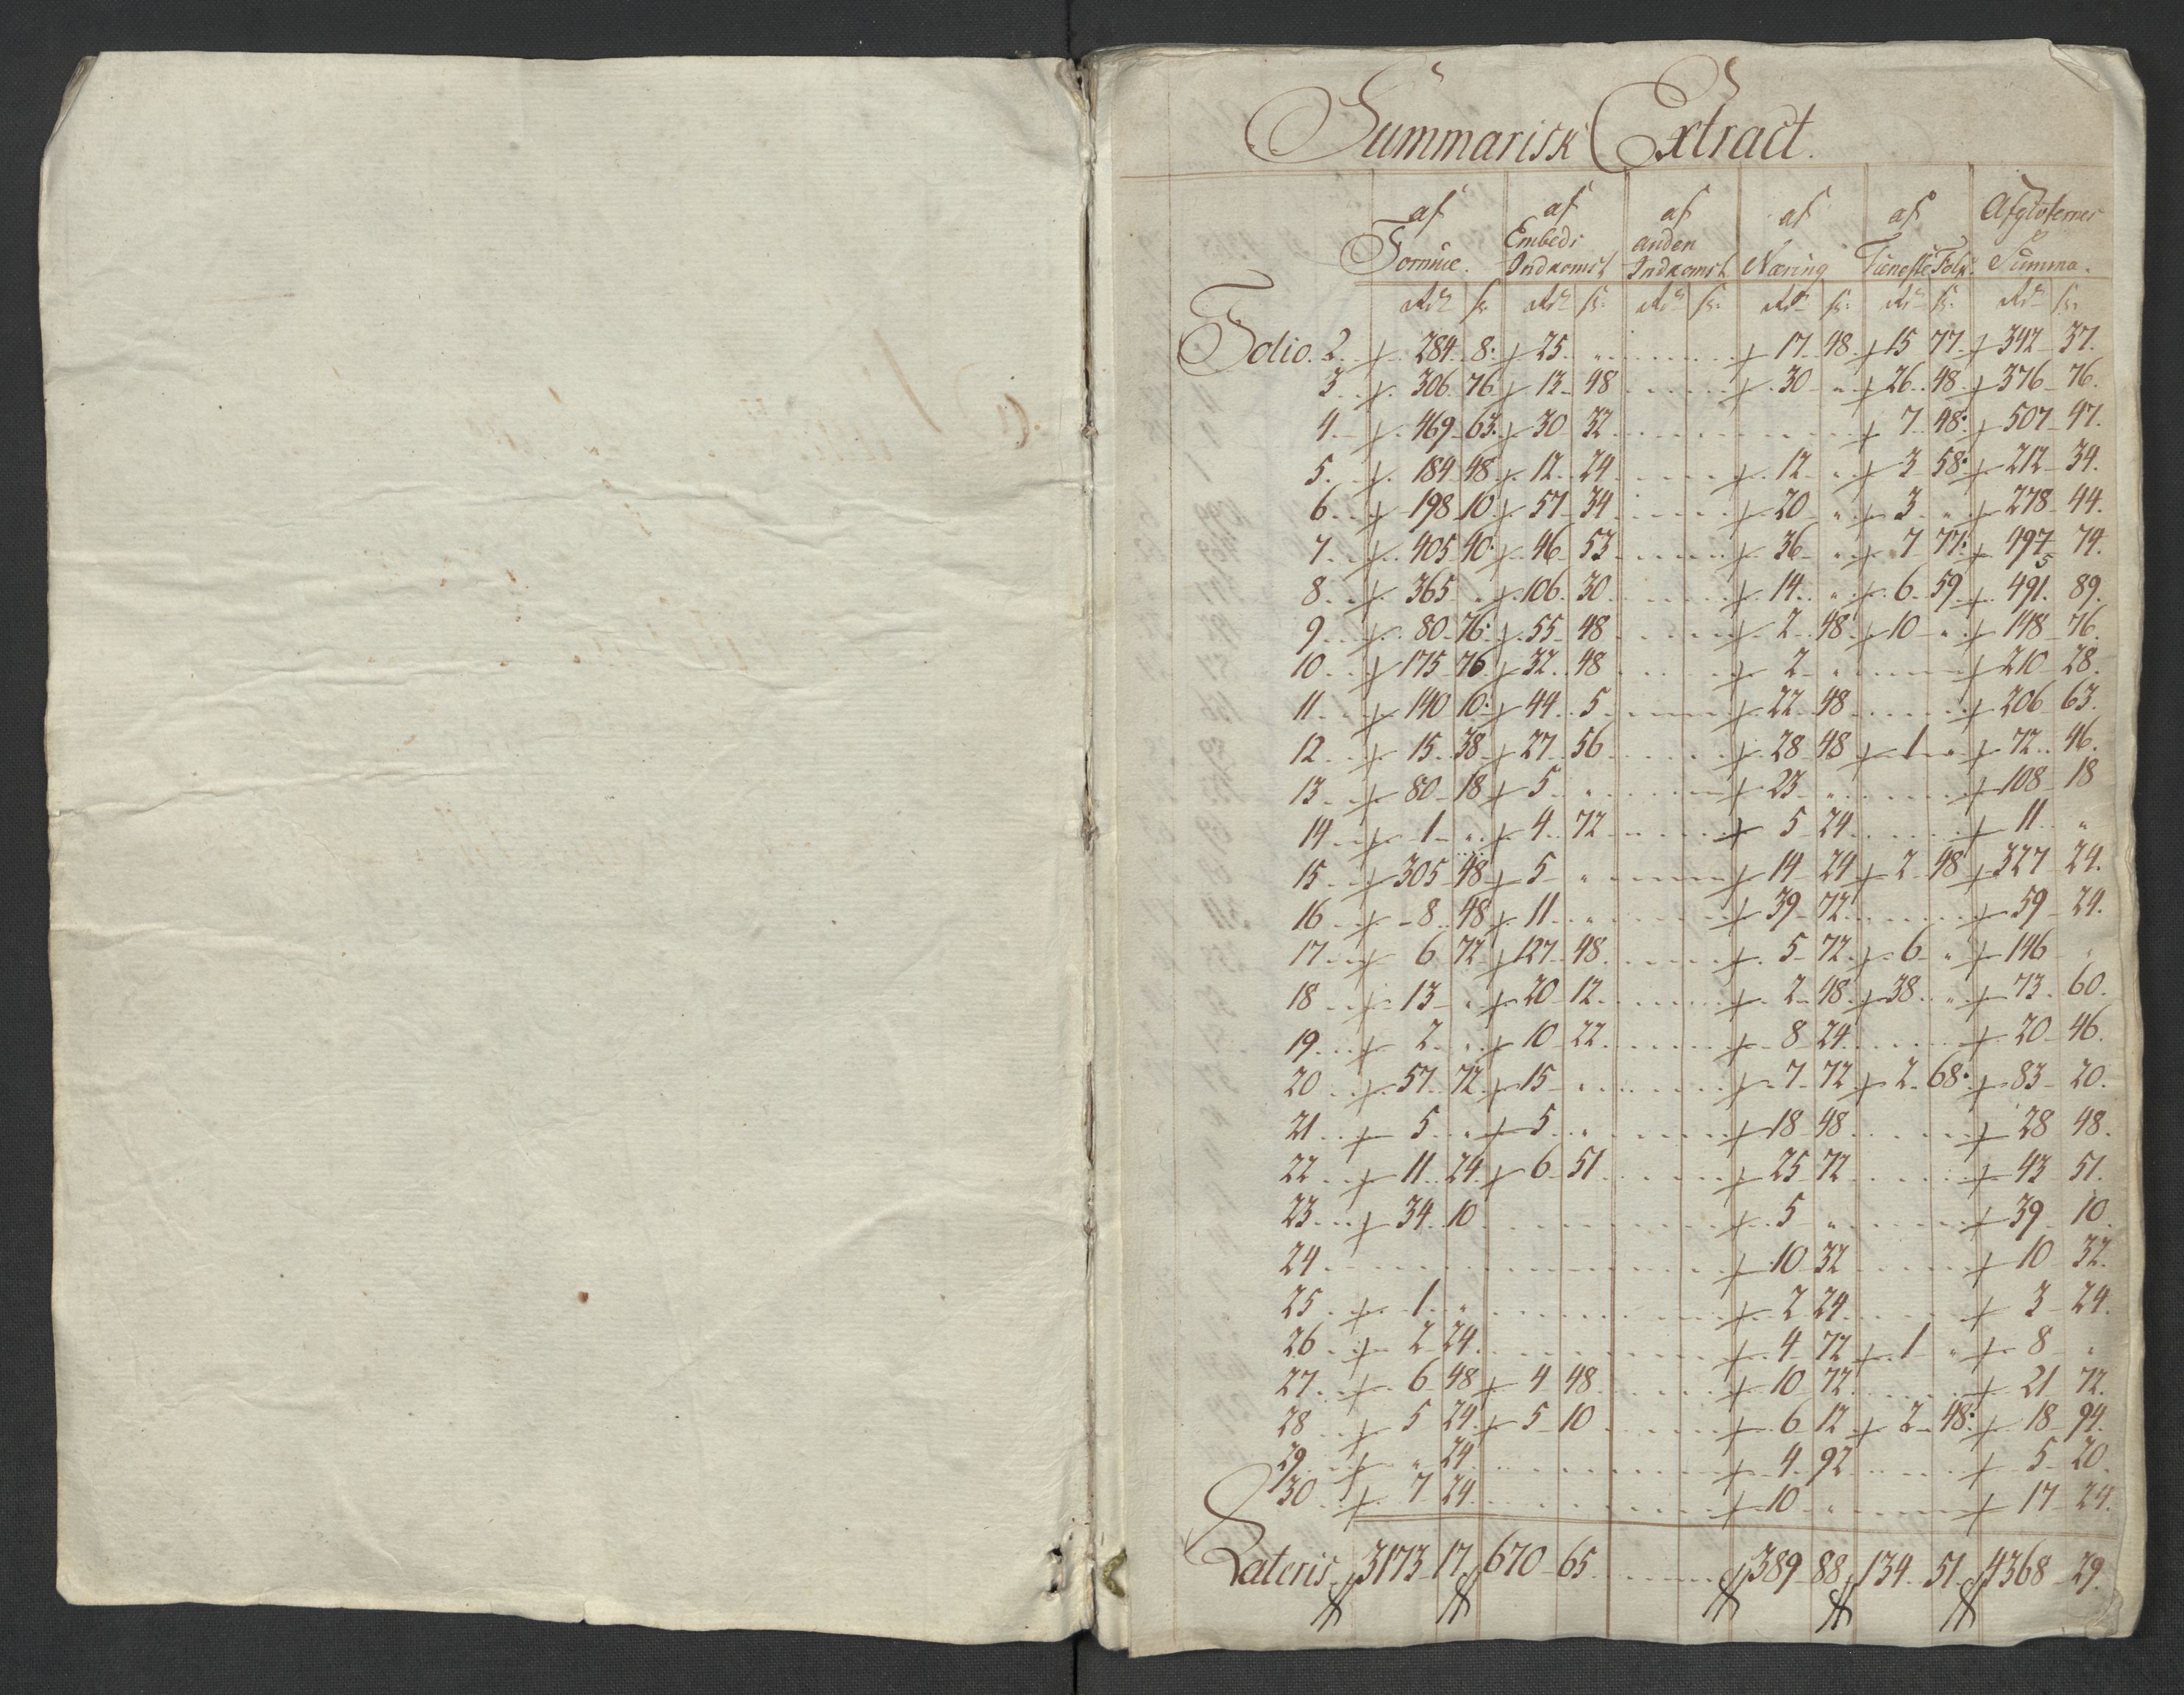 Summarisk Extract.
af af af af af Afgivternes
Formue. Embeds Indkomst anden Indkomst Næring Tieneste Folk. Summa.
Rdr s. Rdr s. Rdr s. Rdr s. Rdr s. Rdr s.
Folio. 2. 284 8. 25 " 17 48 15 77 342 37.
3 306 76 13 48 30 " 26 48 376 76.
4 469 63. 30 32 7 48. 507 47.
5. 184 48 12 24 12 " 3 58. 212 34.
6 198 10 57 34 20 " 3 " 278 44.
7 405 40. 46 53 36 " 7 77. 497 74.
5
8 365 " 106 30 14 " 6 59 491. 89.
9 80 76. 55 48 2 48 10 " 148 76.
10 175 76 32 48 2 " 210 28.
11 140 10. 44 5 22 48 206 63.
12 15 38 27 56 28 48 1 " 72 46.
13 80 18 5 " 23 " 108 18
14 1 " 4 72 5 24 11 "
15 305 48 5 " 14 24 2 48 327 24.
16 8 48 11 " 39 72 59 24.
17 6 72 127 48 5 72 6 " 146 "
18 13 " 20 12 2 48 38 " 73 60.
19 2 " 10 22 8 24 20 46.
20 57 72 15 " 7 72 2 68. 83 20.
21 5 " 5 " 18 48 28 48.
22 11 24 6 51 25 72 43 51.
23 34 10 5 " 39 10.
24 10 32 10 32.
25 1 " 2 24 3 24.
26 2 24 4 72 1 " 8 "
27 6 48 4 48 10 72 21 72.
28 5 24 5 10 6 12 2 48. 18 94.
29 " 24 4 92 5 20.
30 7 24 10 " 17 24.
Lateris 3173 17 670 65 389 88 134 51 4368 29.